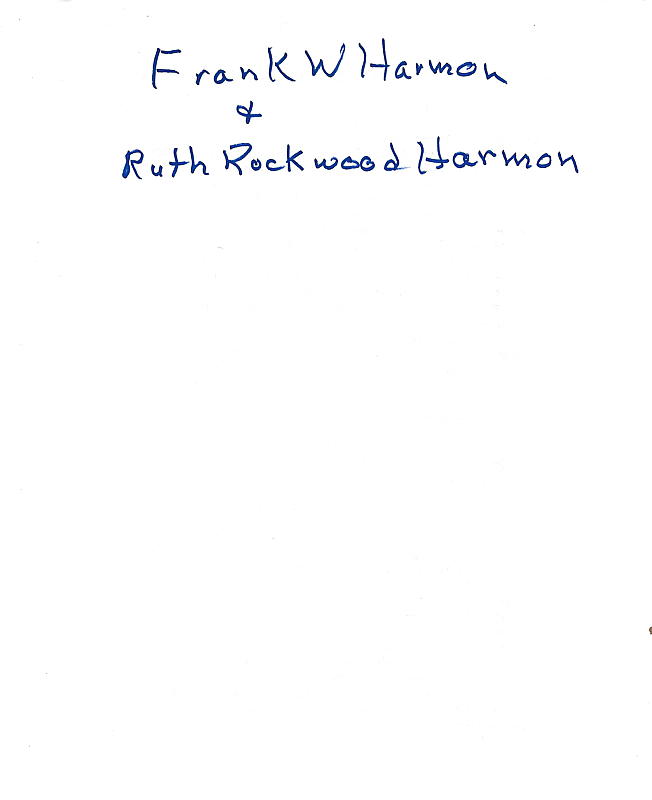 Frank W Harmon
&
Ruth Rockwood Harmon